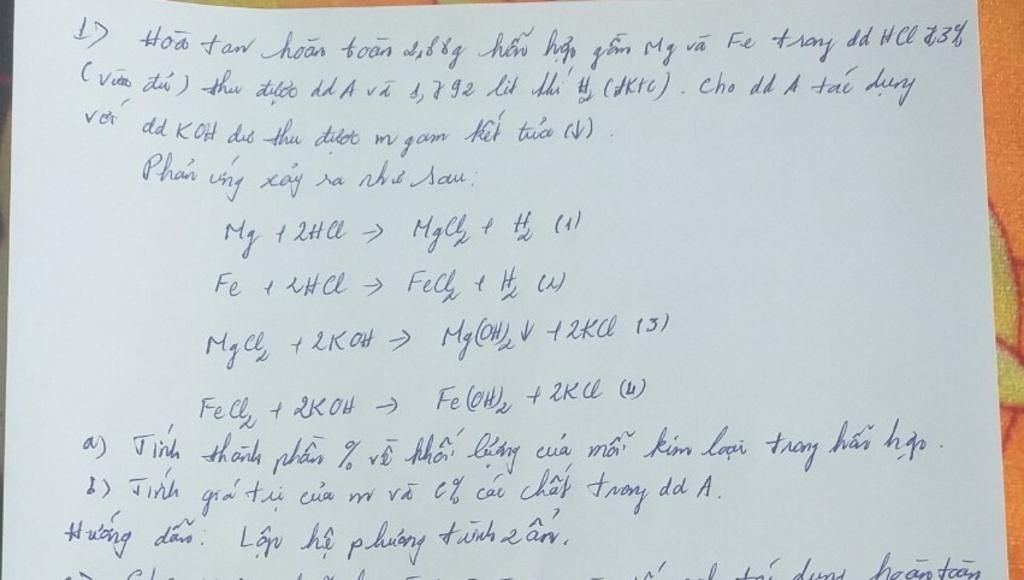 1) Hoà tan hoàn toàn 2,88g hỗn hợp gồm Mg và Fe trong dd HCl 7,3%
(vừa đủ) thu được dd A và 1,792 lít khí H₂ (đktc). Cho dd A tác dụng
với dd KOH dư thu được m gam kết tủa (↓).
Phản ứng xảy ra như sau:
Mg + 2HCl → MgCl₂ + H₂ (1)
Fe + 2HCl → FeCl₂ + H₂ (2)
MgCl₂ + 2KOH → Mg(OH)₂ ↓ + 2KCl (3)
FeCl₂ + 2KOH → Fe(OH)₂ + 2KCl (4)
a) Tính thành phần % về khối lượng của mỗi kim loại trong hỗn hợp.
b) Tính giá trị của m và C% các chất trong dd A.
Hướng dẫn: Lập hệ phương trình 2 ẩn.
tác dụng hoàn toàn